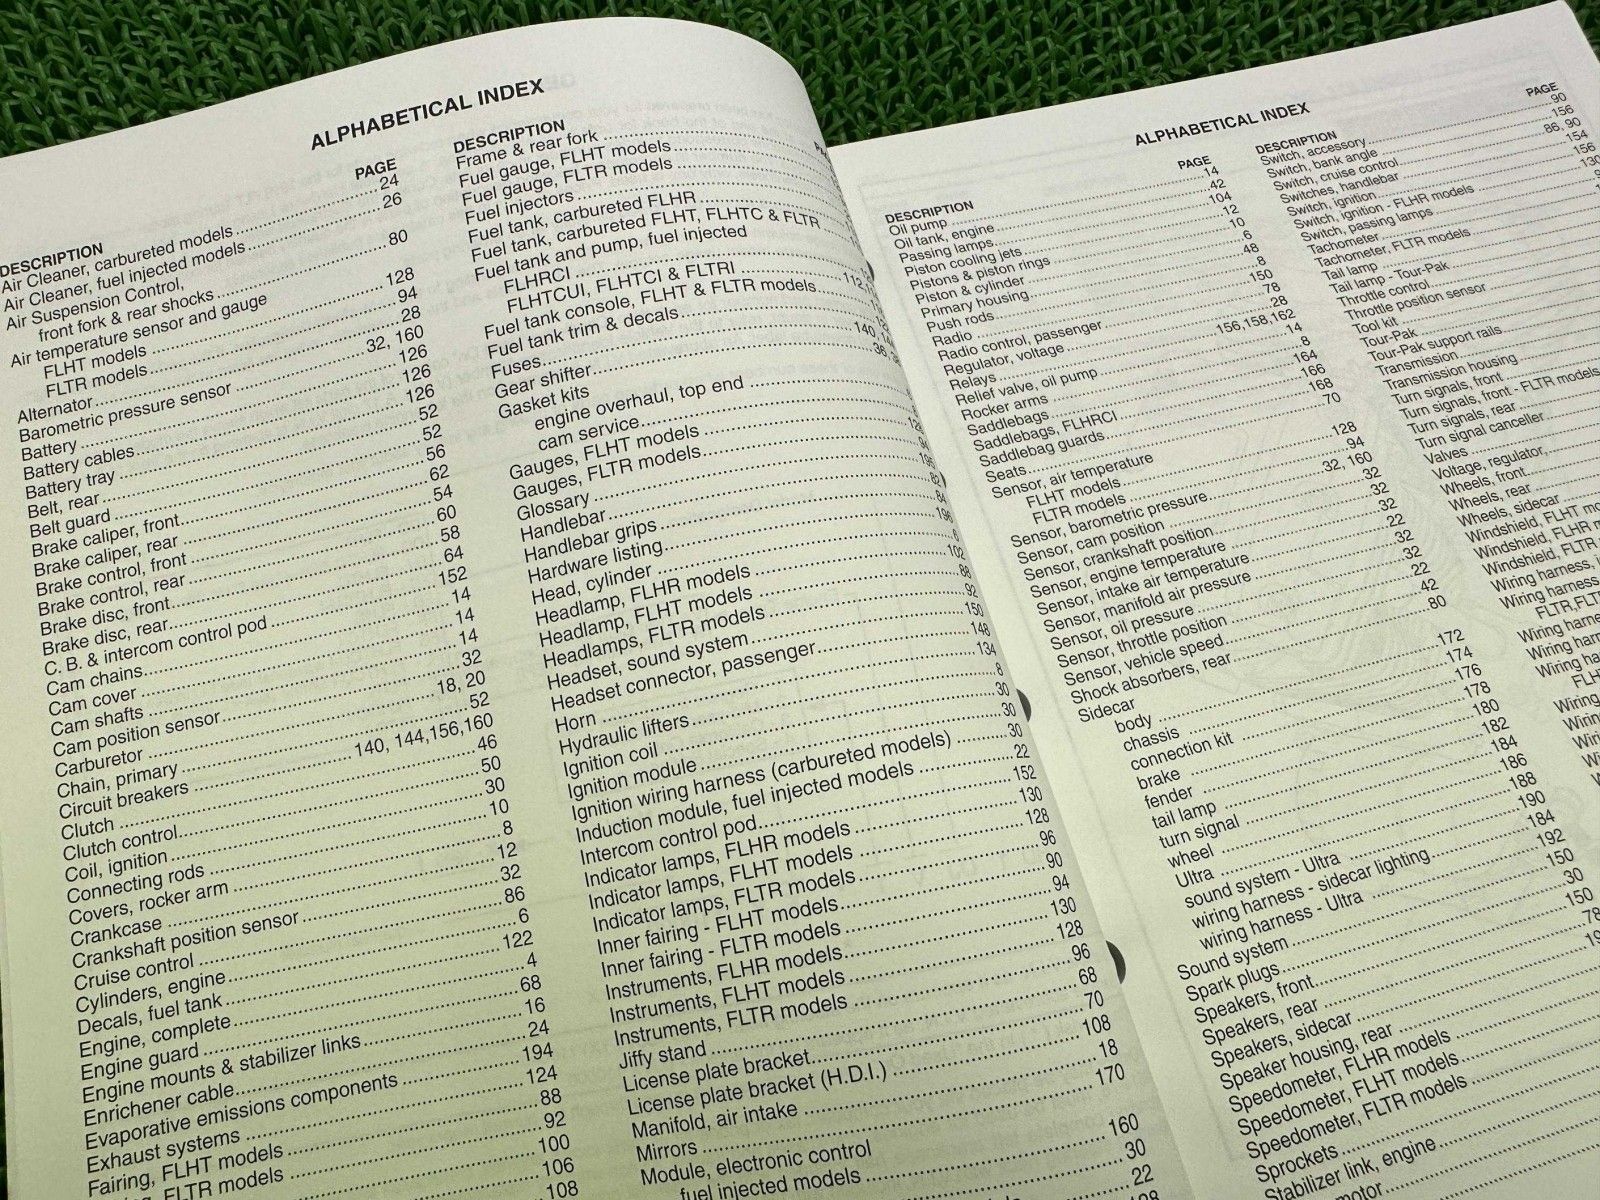 ALPHABETICAL INDEX
DESCRIPTION PAGE
Air Cleaner, carbureted models 24
Air Cleaner, fuel injected models 26
Air Suspension Control,
front fork & rear shocks 80
Air temperature sensor and gauge
FLHT models 128
FLTR models 94
Alternator 28
Barometric pressure sensor 32, 160
Battery 126
Battery cables 126
Battery tray 126
Belt, rear 52
Belt guard 52
Brake caliper, front 56
Brake caliper, rear 62
Brake control, front 54
Brake control, rear 60
Brake disc, front 58
Brake disc, rear 64
C. B. & intercom control pod 152
Cam chains 14
Cam cover 14
Cam shafts 14
Cam position sensor 32
Carburetor 18, 20
Chain, primary 52
Circuit breakers 140, 144,156,160
Clutch 46
Clutch control 50
Coil, ignition 30
Connecting rods 10
Covers, rocker arm 8
Crankcase 12
Crankshaft position sensor 32
Cruise control 86
Cylinders, engine 6
Decals, fuel tank 122
Engine, complete 4
Engine guard 68
Engine mounts & stabilizer links 16
Enrichener cable 24
Evaporative emissions components 194
Exhaust systems 124
Fairing, FLHT models 88
FLTR models 92
100
106
108
DESCRIPTION
Frame & rear fork
Fuel gauge, FLHT models
Fuel gauge, FLTR models
Fuel injectors
Fuel tank, carbureted FLHR
Fuel tank, carbureted FLHT, FLHTC & FLTR
Fuel tank and pump, fuel injected
FLHRCI
FLHTCUI, FLHTCI & FLTRI
Fuel tank console, FLHT & FLTR models
Fuel tank trim & decals
Fuses
Gear shifter
Gasket kits
engine overhaul, top end
cam service
Gauges, FLHT models
Gauges, FLTR models
Glossary
Handlebar 82
Handlebar grips 84
Hardware listing 196
Head, cylinder 6
Headlamp, FLHR models 102
Headlamp, FLHT models 88
Headlamps, FLTR models 92
Headset, sound system 150
Headset connector, passenger 148
Horn 134
Hydraulic lifters 8
Ignition coil 30
Ignition module 30
Ignition wiring harness (carbureted models) 30
Induction module, fuel injected models 22
Intercom control pod 152
Indicator lamps, FLHR models 130
Indicator lamps, FLHT models 128
Indicator lamps, FLTR models 96
Inner fairing - FLHT models 90
Inner fairing - FLTR models 94
Instruments, FLHR models 130
Instruments, FLHT models 128
Instruments, FLTR models 96
Jiffy stand 68
License plate bracket 70
License plate bracket (H.D.I.) 108
Manifold, air intake 18
Mirrors 170
Module, electronic control
fuel injected models 160
30
22
ALPHABETICAL INDEX
DESCRIPTION PAGE
Oil pump 14
Oil tank, engine 42
Passing lamps 104
Piston cooling jets 12
Pistons & piston rings 10
Piston & cylinder 6
Primary housing 48
Push rods 8
Radio 150
Radio control, passenger 78
Regulator, voltage 28
Relays 156,158,162
Relief valve, oil pump 14
Rocker arms 8
Saddlebags 164
Saddlebags, FLHRCI 166
Saddlebag guards 168
Seats 70
Sensor, air temperature
FLHT models 128
FLTR models 94
Sensor, barometric pressure 32, 160
Sensor, cam position 32
Sensor, crankshaft position 32
Sensor, engine temperature 32
Sensor, intake air temperature 22
Sensor, manifold air pressure 32
Sensor, oil pressure 32
Sensor, throttle position 22
Sensor, vehicle speed 42
Shock absorbers, rear 80
Sidecar
body 172
chassis 174
connection kit 176
brake 178
fender 180
tail lamp 182
turn signal 184
wheel 186
Ultra 188
sound system - Ultra 190
wiring harness - sidecar lighting 184
wiring harness - Ultra 192
Sound system 150
Spark plugs 30
Speakers, front 150
Speakers, rear 78
Speakers, sidecar
Speaker housing, rear
Speedometer, FLHR models
Speedometer, FLHT models
Speedometer, FLTR models
Sprockets
Stabilizer link, engine
motor
DESCRIPTION PAGE
Switch, accessory 90
Switch, bank angle 156
Switch, cruise control 86, 90
Switches, handlebar 154
Switch, ignition 156
Switch, ignition - FLHR models 130
Switch, passing lamps
Tachometer
Tachometer, FLTR models
Tail lamp
Tail lamp - Tour-Pak
Throttle control
Throttle position sensor
Tool kit
Tour-Pak
Tour-Pak support rails
Transmission
Transmission housing
Turn signals, front
Turn signals, front - FLTR models
Turn signals, rear
Turn signal canceller
Valves
Voltage, regulator,
Wheels, front
Wheels, rear
Wheels, sidecar
Windshield, FLHT
Windshield, FLHR
Windshield, FLTR
Wiring harness,
Wiring harness
Wiring
Wiring
Wiring